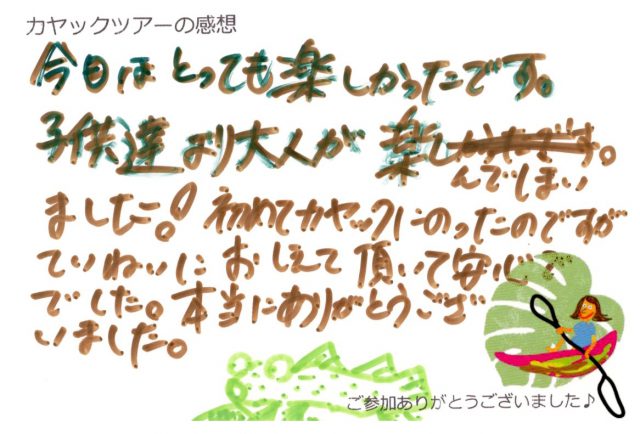 カヤックツアーの感想
今日は とっても楽しかったです。
子供達 より大人が 楽しかたです。
んでしまい
ました! 初めてカヤックにのったのですが
ていねいに おしえて 頂いて安心
でした。本当にありがとうござ
いました。
ご参加ありがとうございました♪